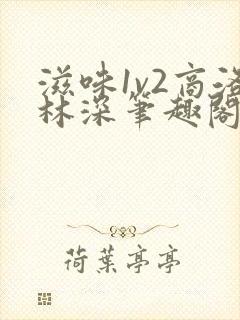 滋味1v2高洛
林深筆趣閣
荷葉亭亭